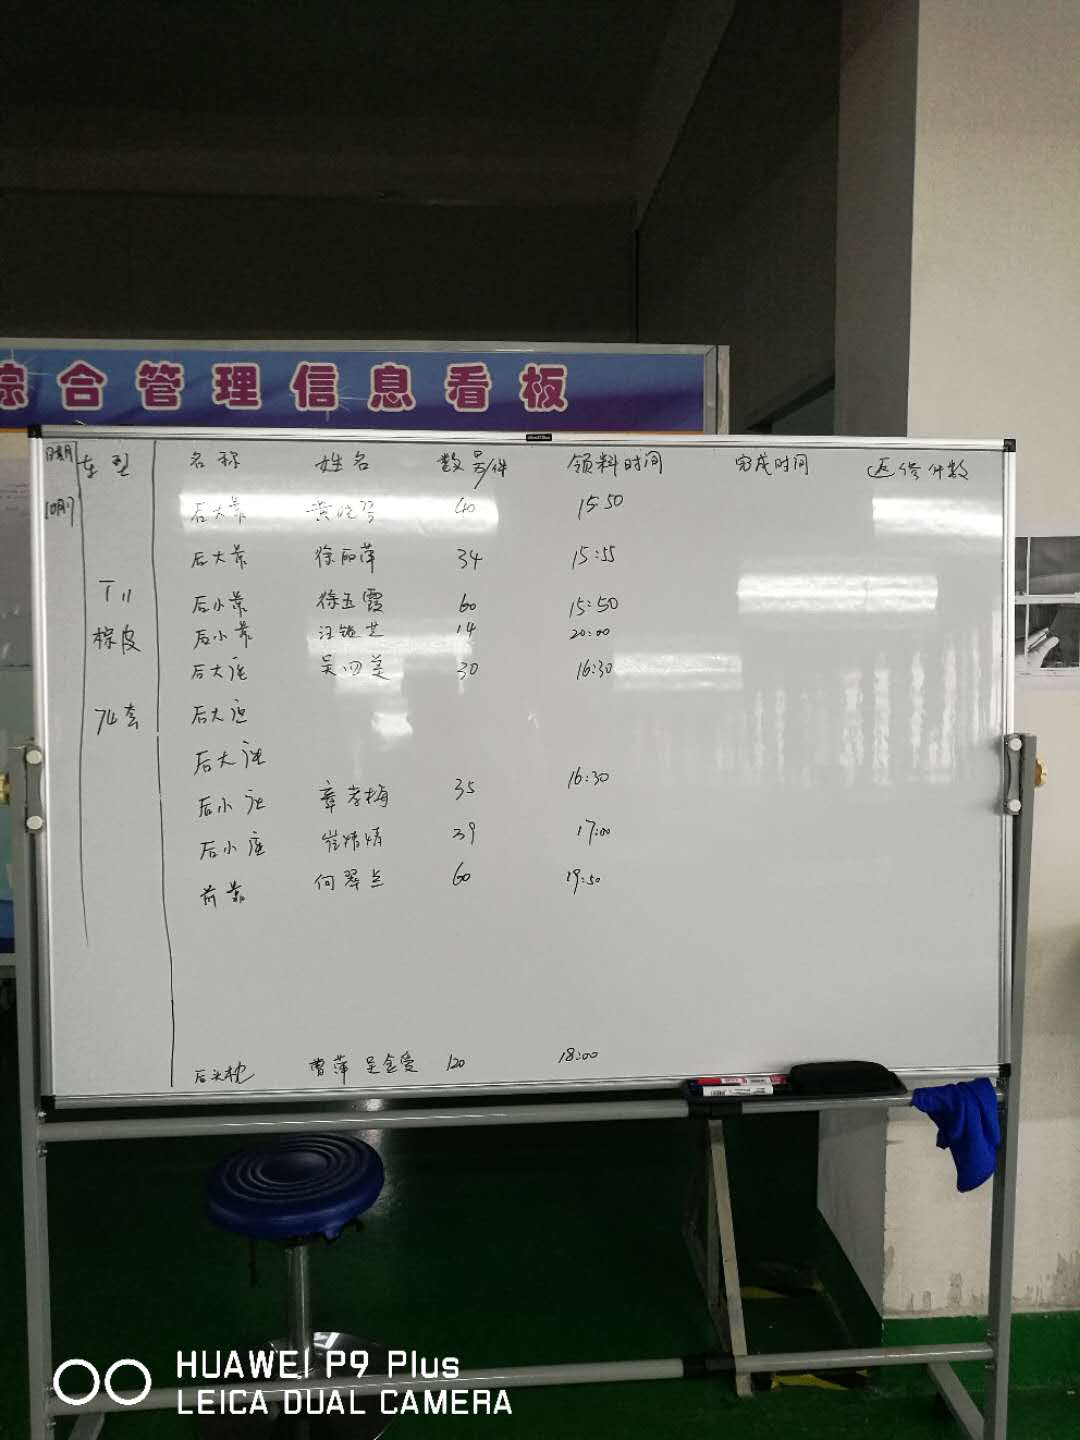 综合管理信息看板
日期 车型 名称 姓名 数量/件 领料时间 完成时间 返修件数
后大靠 40 15:50
后大靠 徐丽萍 34 15:55
T11
后小靠 徐五霞 60 15:50
棕皮 后小靠 14 20:00
后大座 吴四英 30 16:30
74套 后大座
后大座
后小座 章孝梅 35 16:30
后小座 崔婧婧 39 17:00
前靠 何翠兰 60 19:50
后头枕 曹萍 吴金爱 120 18:00
HUAWEI P9 Plus
LEICA DUAL CAMERA